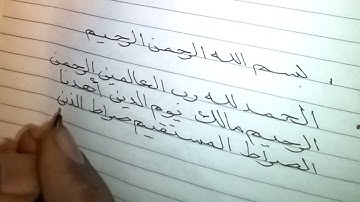 بسم الله الرحمن الرحيم
الحمد لله رب العالمين الرحمن
الرحيم مالك يوم الدين أهدنا
الصراط المستقيم صراط الذين